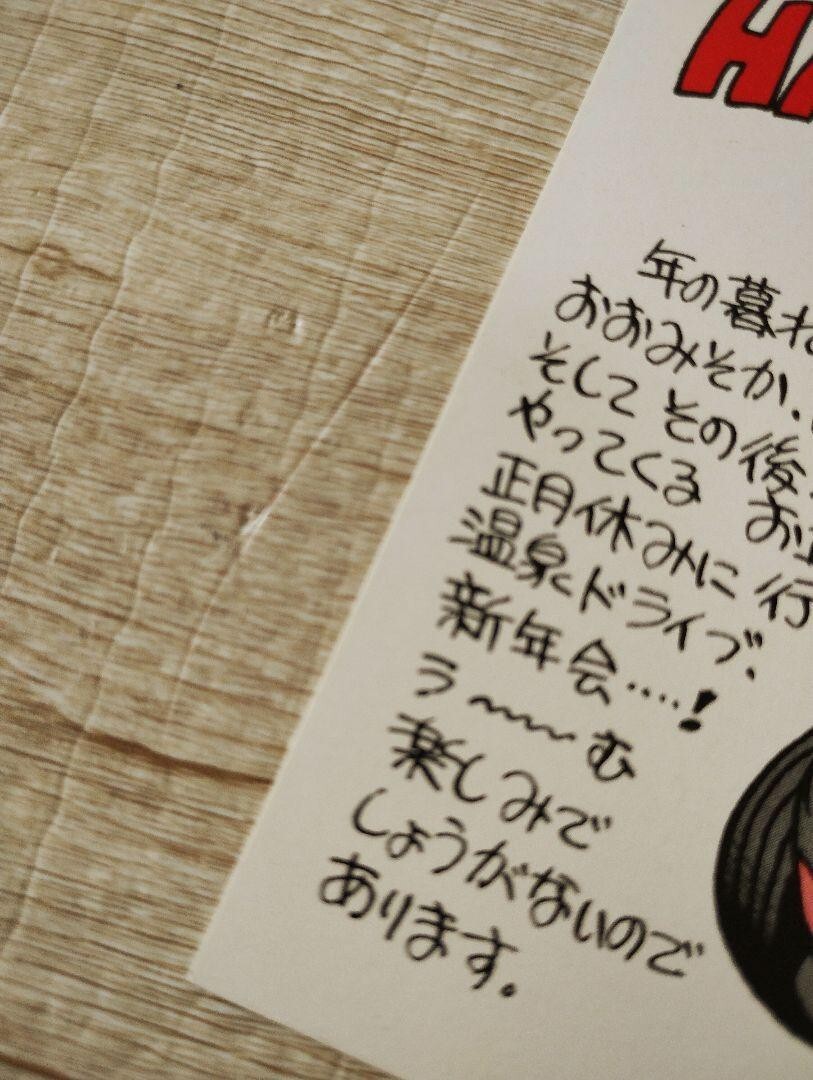 HA
年の暮れ
おおみそか、
そして その後、
やってくる お正
正月休みに 行
温泉ドライブ、
新年会……!
う〜〜〜む
楽しみで
しょうがないので
あります。